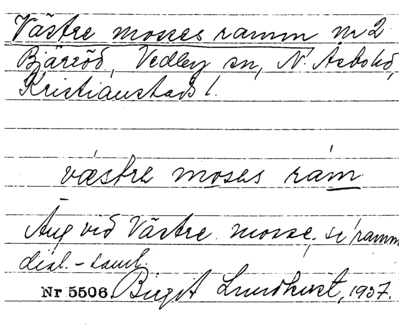 Västre mosses ramm nr 2
Bjäröd, Vedby sn, N. Åsbohd,
Kristianstads l.
västre moses ràm
Äng vid Västre mosse, se ramm
dial.-saml.
Nr 5506. Birgit Lundkvist, 1937.